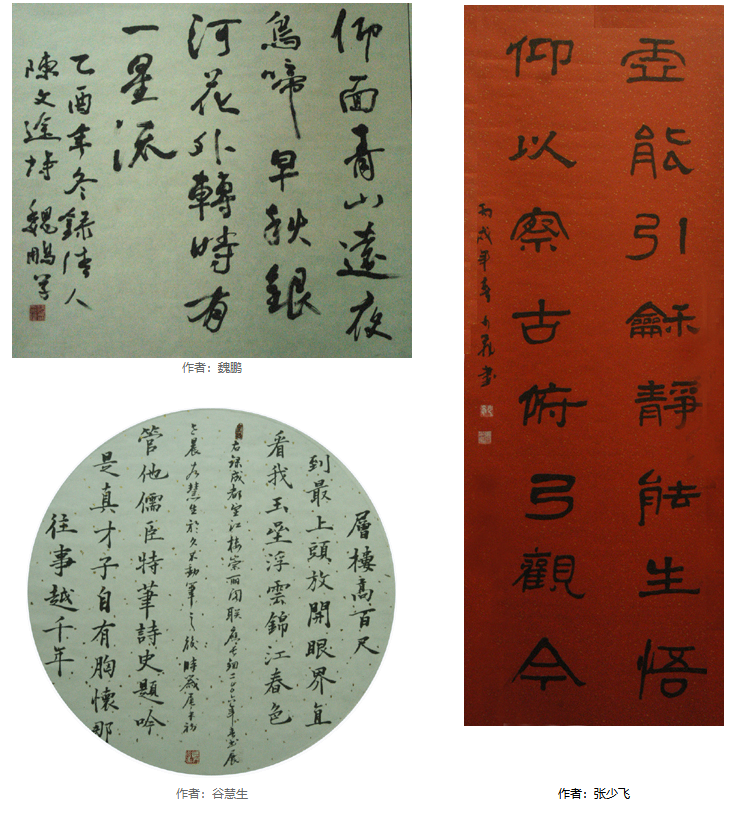 仰面青山遠夜
鳥啼早秋銀
河花外轉時有
一星流
乙酉年冬録清人
陳文途诗 魏鵬
作者：魏鹏
虚能引龢靜能生悟
仰以察古俯以觀今
丙戌年春少飛書
作者：张少飞
層樓高百尺
到最上頭放開眼界且
看我玉壘浮雲錦江春色
往事越千年
是真才子自有胸懷那
管他儒臣特筆詩史題吟
右録成都望江樓崇丽閣聯
作者：谷慧生